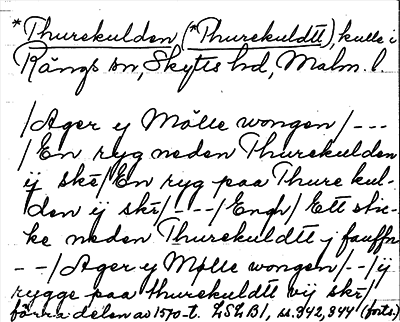 *Thurekulden (*Thurekuldtt), kulle i
Rängs sn, Skytts hd, Malm. l.
/Ager ÿ Mölle wongen/ ---
/En ryg neden Thurekulden
ÿ skē/ En ryg paa Thure kul-
den ÿ skē/ ---/Engh/ Ett stic-
ke neden Thurekuldtt ÿ fauffn
--/Ager ÿ Mølle wongen/--/ÿ
rygge paa thurekuldtt vÿ skē/
förra delen av 1570-t. LSLB1, s. 342, 344 (forts.)